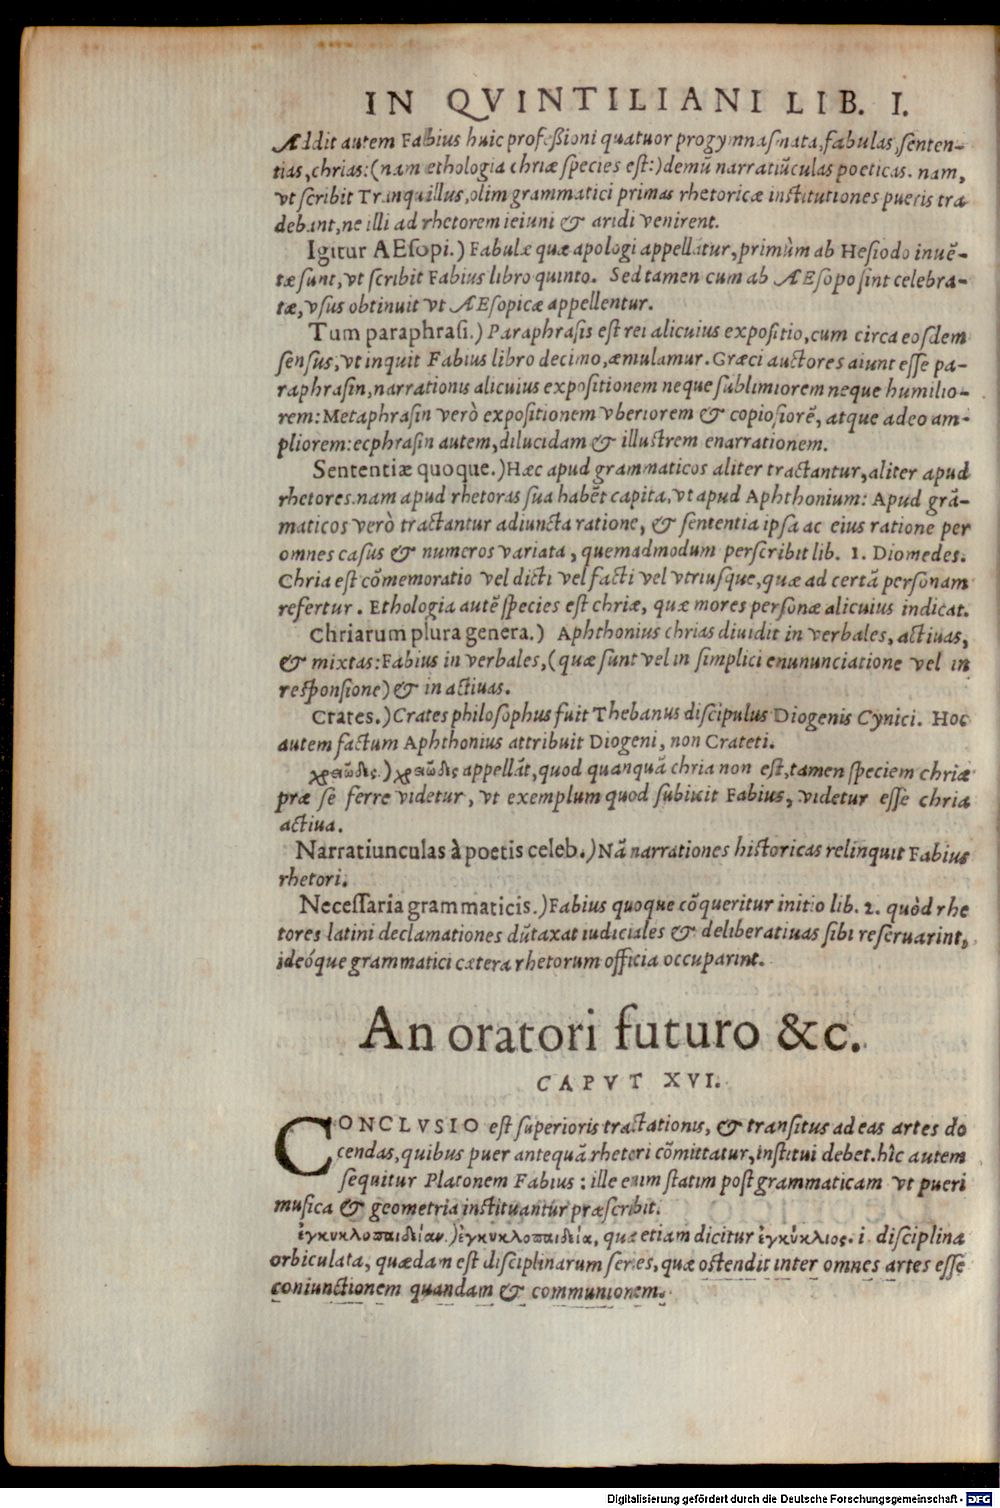 IN QVINTILIANI LIB. I.
Addit autem Fabius huic profeßioni quatuor progymnasmata, fabulas, senten-
tias, chrias: (nam ethologia chriæ species est:) demũ narratiũculas poeticas. nam,
vt scribit Tranquillus, olim grammatici primas rhetoricæ institutiones pueris tra
debant, ne illi ad rhetorem ieiuni & aridi venirent.
Igitur AEsopi.) Fabulæ quæ apologi appellãtur, primùm ab Hesiodo inuẽ-
tæ sunt, vt scribit Fabius libro quinto. Sed tamen cum ab AEsopo sint celebra-
tæ, vsus obtinuit vt AEsopicæ appellentur.
Tum paraphrasi.) Paraphrasis est rei alicuius expositio, cum circa eosdem
sensus, vt inquit Fabius libro decimo, æmulamur. Græci auctores aiunt esse pa-
raphrasin, narrationis alicuius expositionem neque sublimiorem neque humilio-
rem: Metaphrasin verò expositionem vberiorem & copiosiorẽ, atque adeo am-
pliorem: ecphrasin autem, dilucidam & illustrem enarrationem.
Sententiæ quoque.) Hæc apud grammaticos aliter tractantur, aliter apud
rhetores. nam apud rhetoras sua habẽt capita, vt apud Aphthonium: Apud grã-
maticos verò tractantur adiuncta ratione, & sententia ipsa ac eius ratione per
omnes casus & numeros variata, quemadmodum perscribit lib. 1. Diomedes.
Chria est cõmemoratio vel dicti vel facti vel vtriusque, quæ ad certã personam
refertur. Ethologia autẽ species est chriæ, quæ mores personæ alicuius indicat.
Chriarum plura genera.) Aphthonius chrias diuidit in verbales, actiuas,
& mixtas: Fabius in verbales, (quæ sunt vel in simplici enununciatione vel in
responsione) & in actiuas.
Crates.) Crates philosophus fuit Thebanus discipulus Diogenis Cynici. Hoc
autem factum Aphthonius attribuit Diogeni, non Crateti.
χρειῶδες.) χρειῶδες appellãt, quod quanquã chria non est, tamen speciem chriæ
præ se ferre videtur, vt exemplum quod subiicit Fabius, videtur esse chria
actiua.
Narratiunculas à poetis celeb.) Nã narrationes historicas relinquit Fabius
rhetori.
Necessaria grammaticis.) Fabius quoque cõqueritur initio lib. 2. quòd rhe
tores latini declamationes dũtaxat iudiciales & deliberatiuas sibi reseruarint,
ideóque grammatici cætera rhetorum officia occuparint.
An oratori futuro &c.
CAPVT XVI.
CONCLVSIO est superioris tractationis, & transitus ad eas artes do
cendas, quibus puer antequã rhetori cõmittatur, institui debet. hîc autem
sequitur Platonem Fabius: ille enim statim post grammaticam vt pueri
musica & geometria instituantur præscribit.
ἐγκυκλοπαιδείαν.) ἐγκυκλοπαιδεία, quæ etiam dicitur ἐγκύκλιος. i. disciplina
orbiculata, quædam est disciplinarum series, quæ ostendit inter omnes artes esse
coniunctionem quandam & communionem.
Digitalisierung gefördert durch die Deutsche Forschungsgemeinschaft - DFG